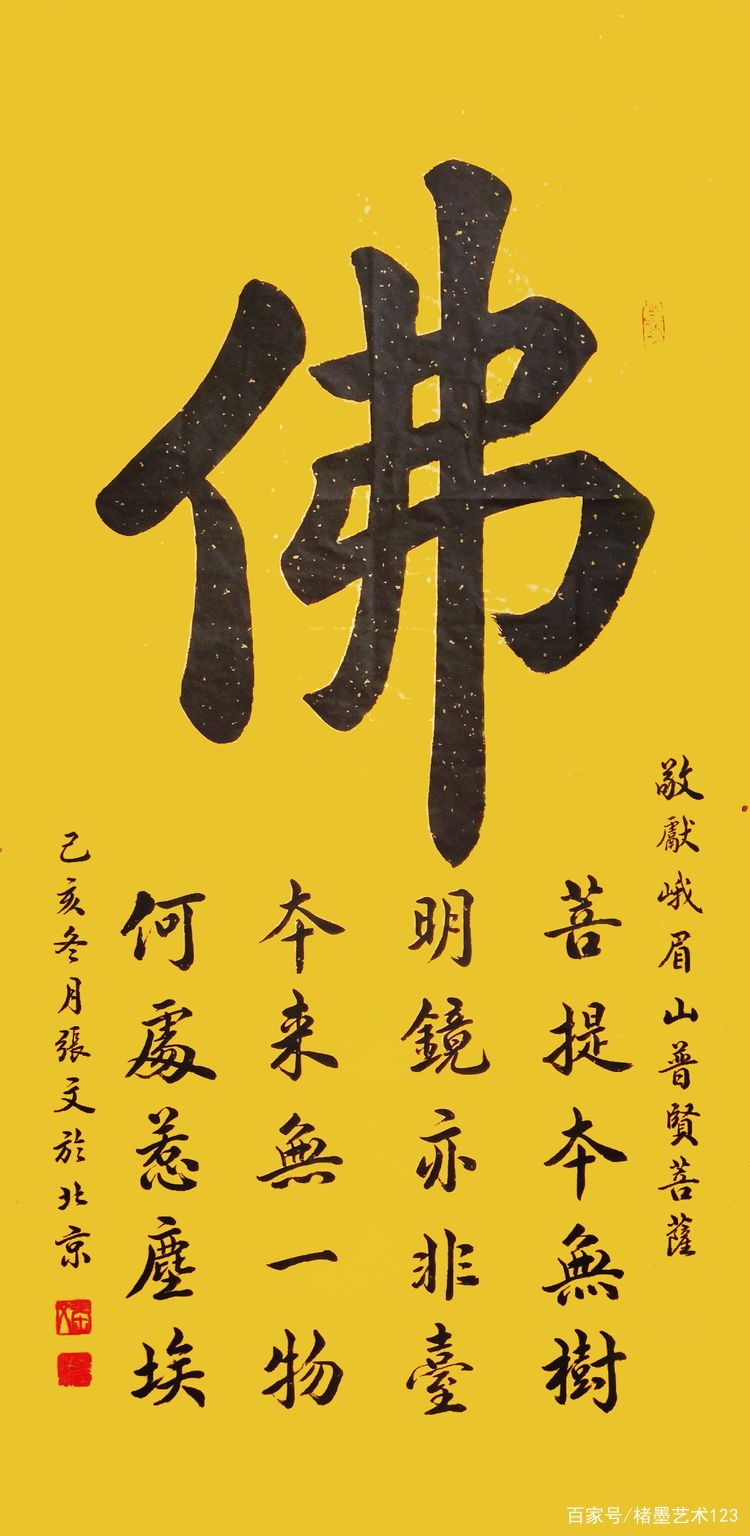 佛
敬獻峨眉山普賢菩薩
菩提本無樹
明鏡亦非臺
本来無一物
何處惹塵埃
己亥冬月張文於北京
百家号/楮墨艺术123